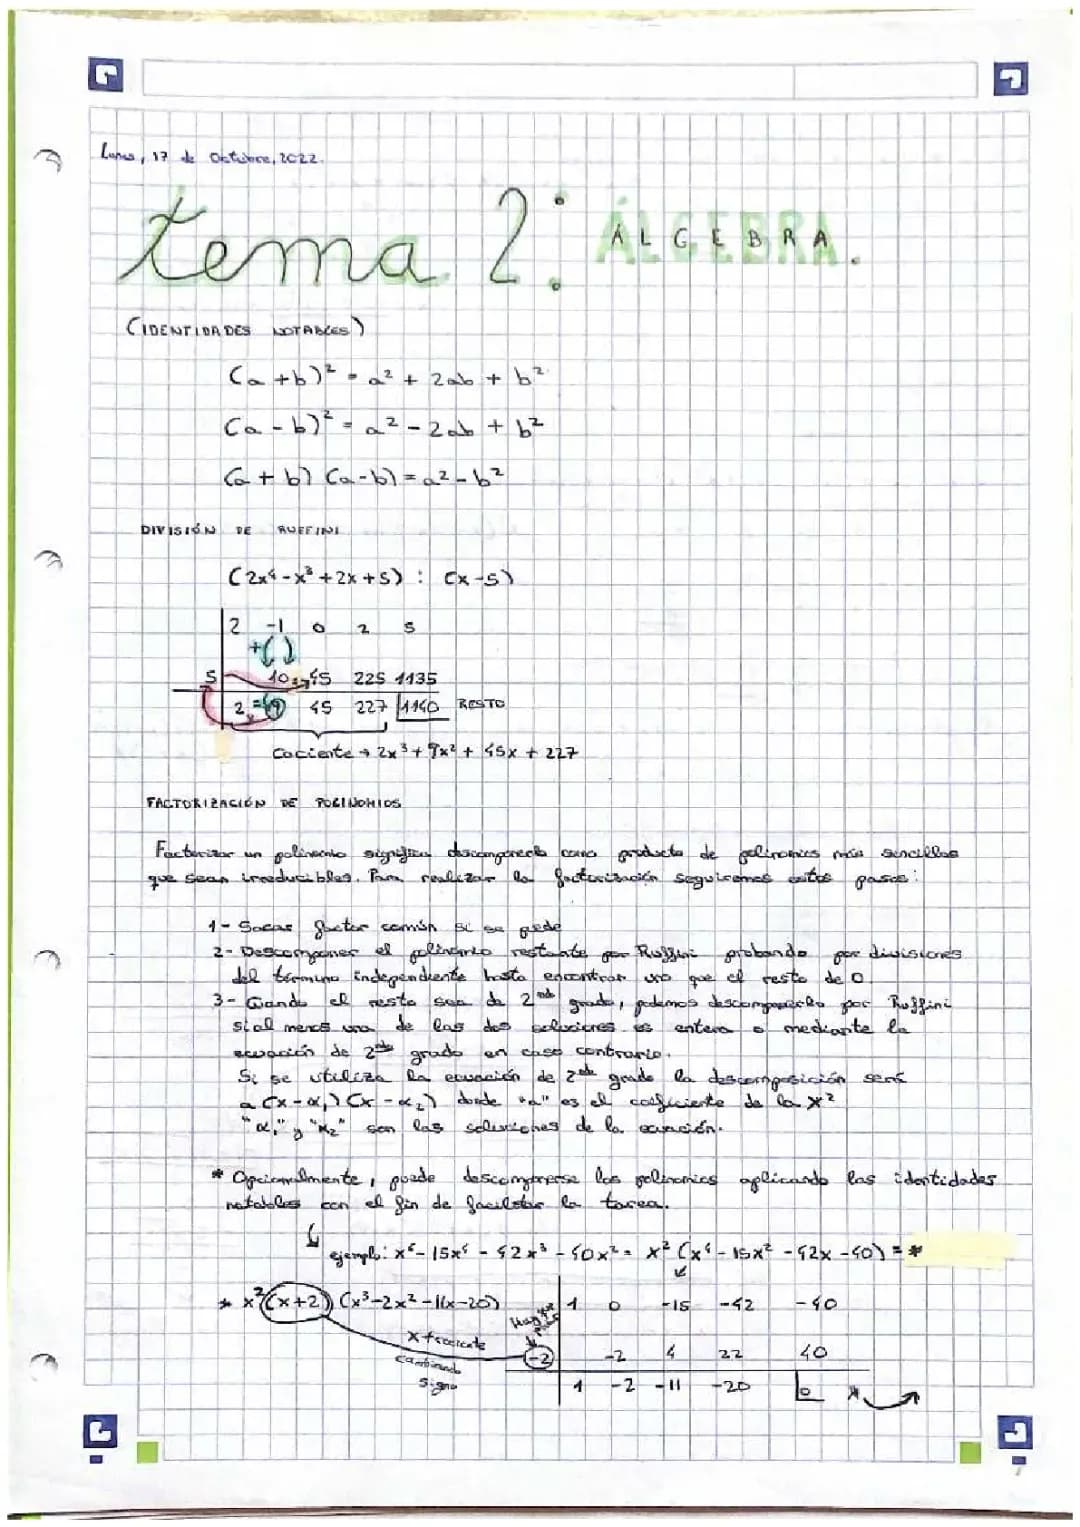 Lunes, 17 de Octubre, 2022.
tema 2: ÁLGEBRA.
(IDENTIDADES NOTABLES)
(a+b)² = a² + 2ab + b²
(a-b)² = a² - 2ab + b²
(a+b) (a-b) = a² - b²
DIVISIÓN DE RUFFINI
(2x⁴ - x³ + 2x + 5) : (x-5)
2 -1 0 2 5
+
5 10 45 225 1135
2 = 9 45 227 1140 RESTO
x
Cociente → 2x³ + 9x² + 45x + 227
FACTORIZACIÓN DE POLINOMIOS
Factorizar un polinomio significa descomponerlo como producto de polinomios más sencillos
que sean irreducibles. Para realizar la factorización seguiremos estos pasos:
1- Sacar factor común si se puede
2- Descomponer el polinomio restante por Ruffini probando por divisiones
del término independiente hasta encontrar uno que el resto de 0.
3- Cuando el resto sea de 2ndo grado, podemos descomponerlo por Ruffini
si al menos una de las dos soluciones es entera o mediante la
ecuación de 2ndo grado en caso contrario.
Si se utiliza la ecuación de 2ndo grado la descomposición será
a (x-α₁) (x-α₂) donde "a" es el coeficiente de la x²
"α₁" y "α₂" son las soluciones de la ecuación.
* Opcionalmente, puede descomponerse los polinomios aplicando las identidades
notables con el fin de facilitar la tarea.
ejemplo: x⁶ - 15x⁴ - 42x³ - 40x² = x² (x⁴ - 15x² - 42x - 40) = *
* x² (x+2) (x³ - 2x² - 11x - 20)
1 0 -15 -42 -40
x + cociente
-2 -2 4 22 40
cambiando
signo
1 -2 -11 -20 0 *